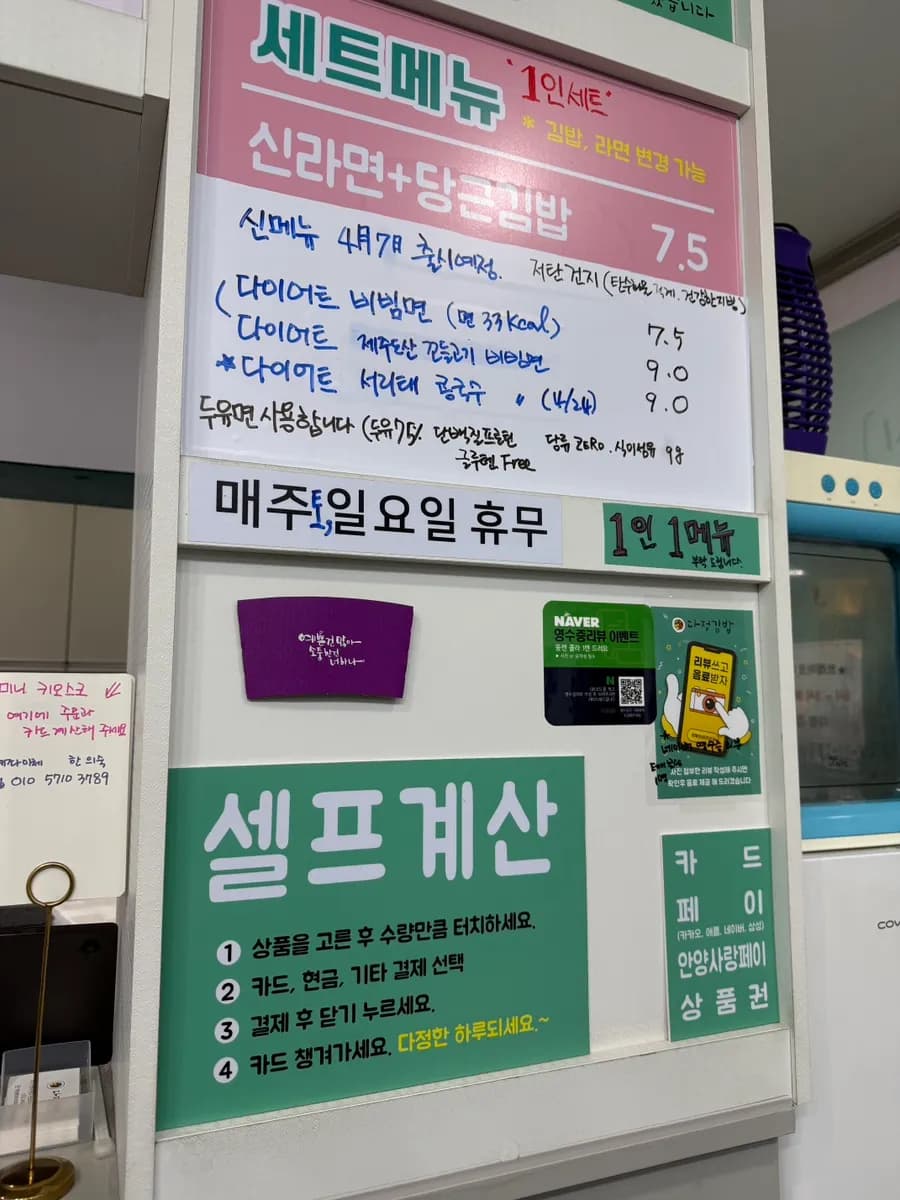 습니다
세트메뉴 "1인세트"
* 김밥, 라면 변경 가능
신라면+당근김밥 7.5
신메뉴 4月7日 출시예정. 저탄건지(탄수화물 적게. 건강한지방)
(다이어트 비빔면 (면 33Kcal) 7.5
다이어트 제주도산 꼬들고기 비빔면 9.0
*다이어트 서리태 콩국수 〃 (4/24) 9.0
두유면 사용합니다 (두유75% 단백질프로틴 당류 ZERO. 식이섬유 9g
글루텐 Free
매주토,일요일 휴무
1인 1메뉴
부탁 드립니다.
예쁜건 많아
소중한건
너하나
NAVER
영수증리뷰 이벤트
다정김밥
리뷰쓰고
음료받자
사진 첨부한 리뷰 작성해 주시면
확인후 음료 제공 해 드리겠습니다.
미니 키오스크
여기에 주문과
카드계산해 주세요
한의숙
010 5710 3789
셀프계산
1 상품을 고른 후 수량만큼 터치하세요.
2 카드, 현금, 기타 결제 선택
3 결제 후 닫기 누르세요.
4 카드 챙겨가세요. 다정한 하루되세요.~
카드
페이
(카카오, 애플, 네이버, 삼성)
안양사랑페이
상품권
COV